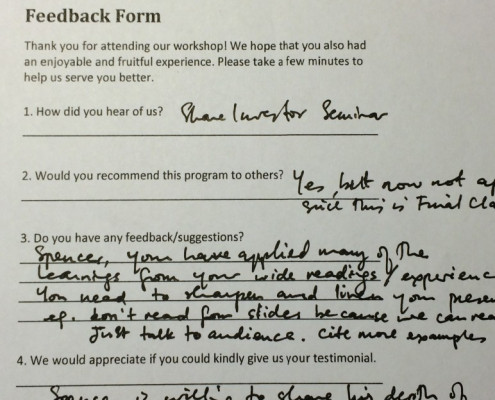 Feedback Form
Thank you for attending our workshop! We hope that you also had
an enjoyable and fruitful experience. Please take a few minutes to
help us serve you better.
1. How did you hear of us? Share Investor Seminar
2. Would you recommend this program to others? Yes, but now not
since this is Final
3. Do you have any feedback/suggestions?
Spencer, you have applied many of the
learnings from your wide readings /
You need to sharpen and liven your
eg. don't read from slides because we can
Just talk to audience. Cite more examples
4. We would appreciate if you could kindly give us your testimonial.
is willing to share his depth of